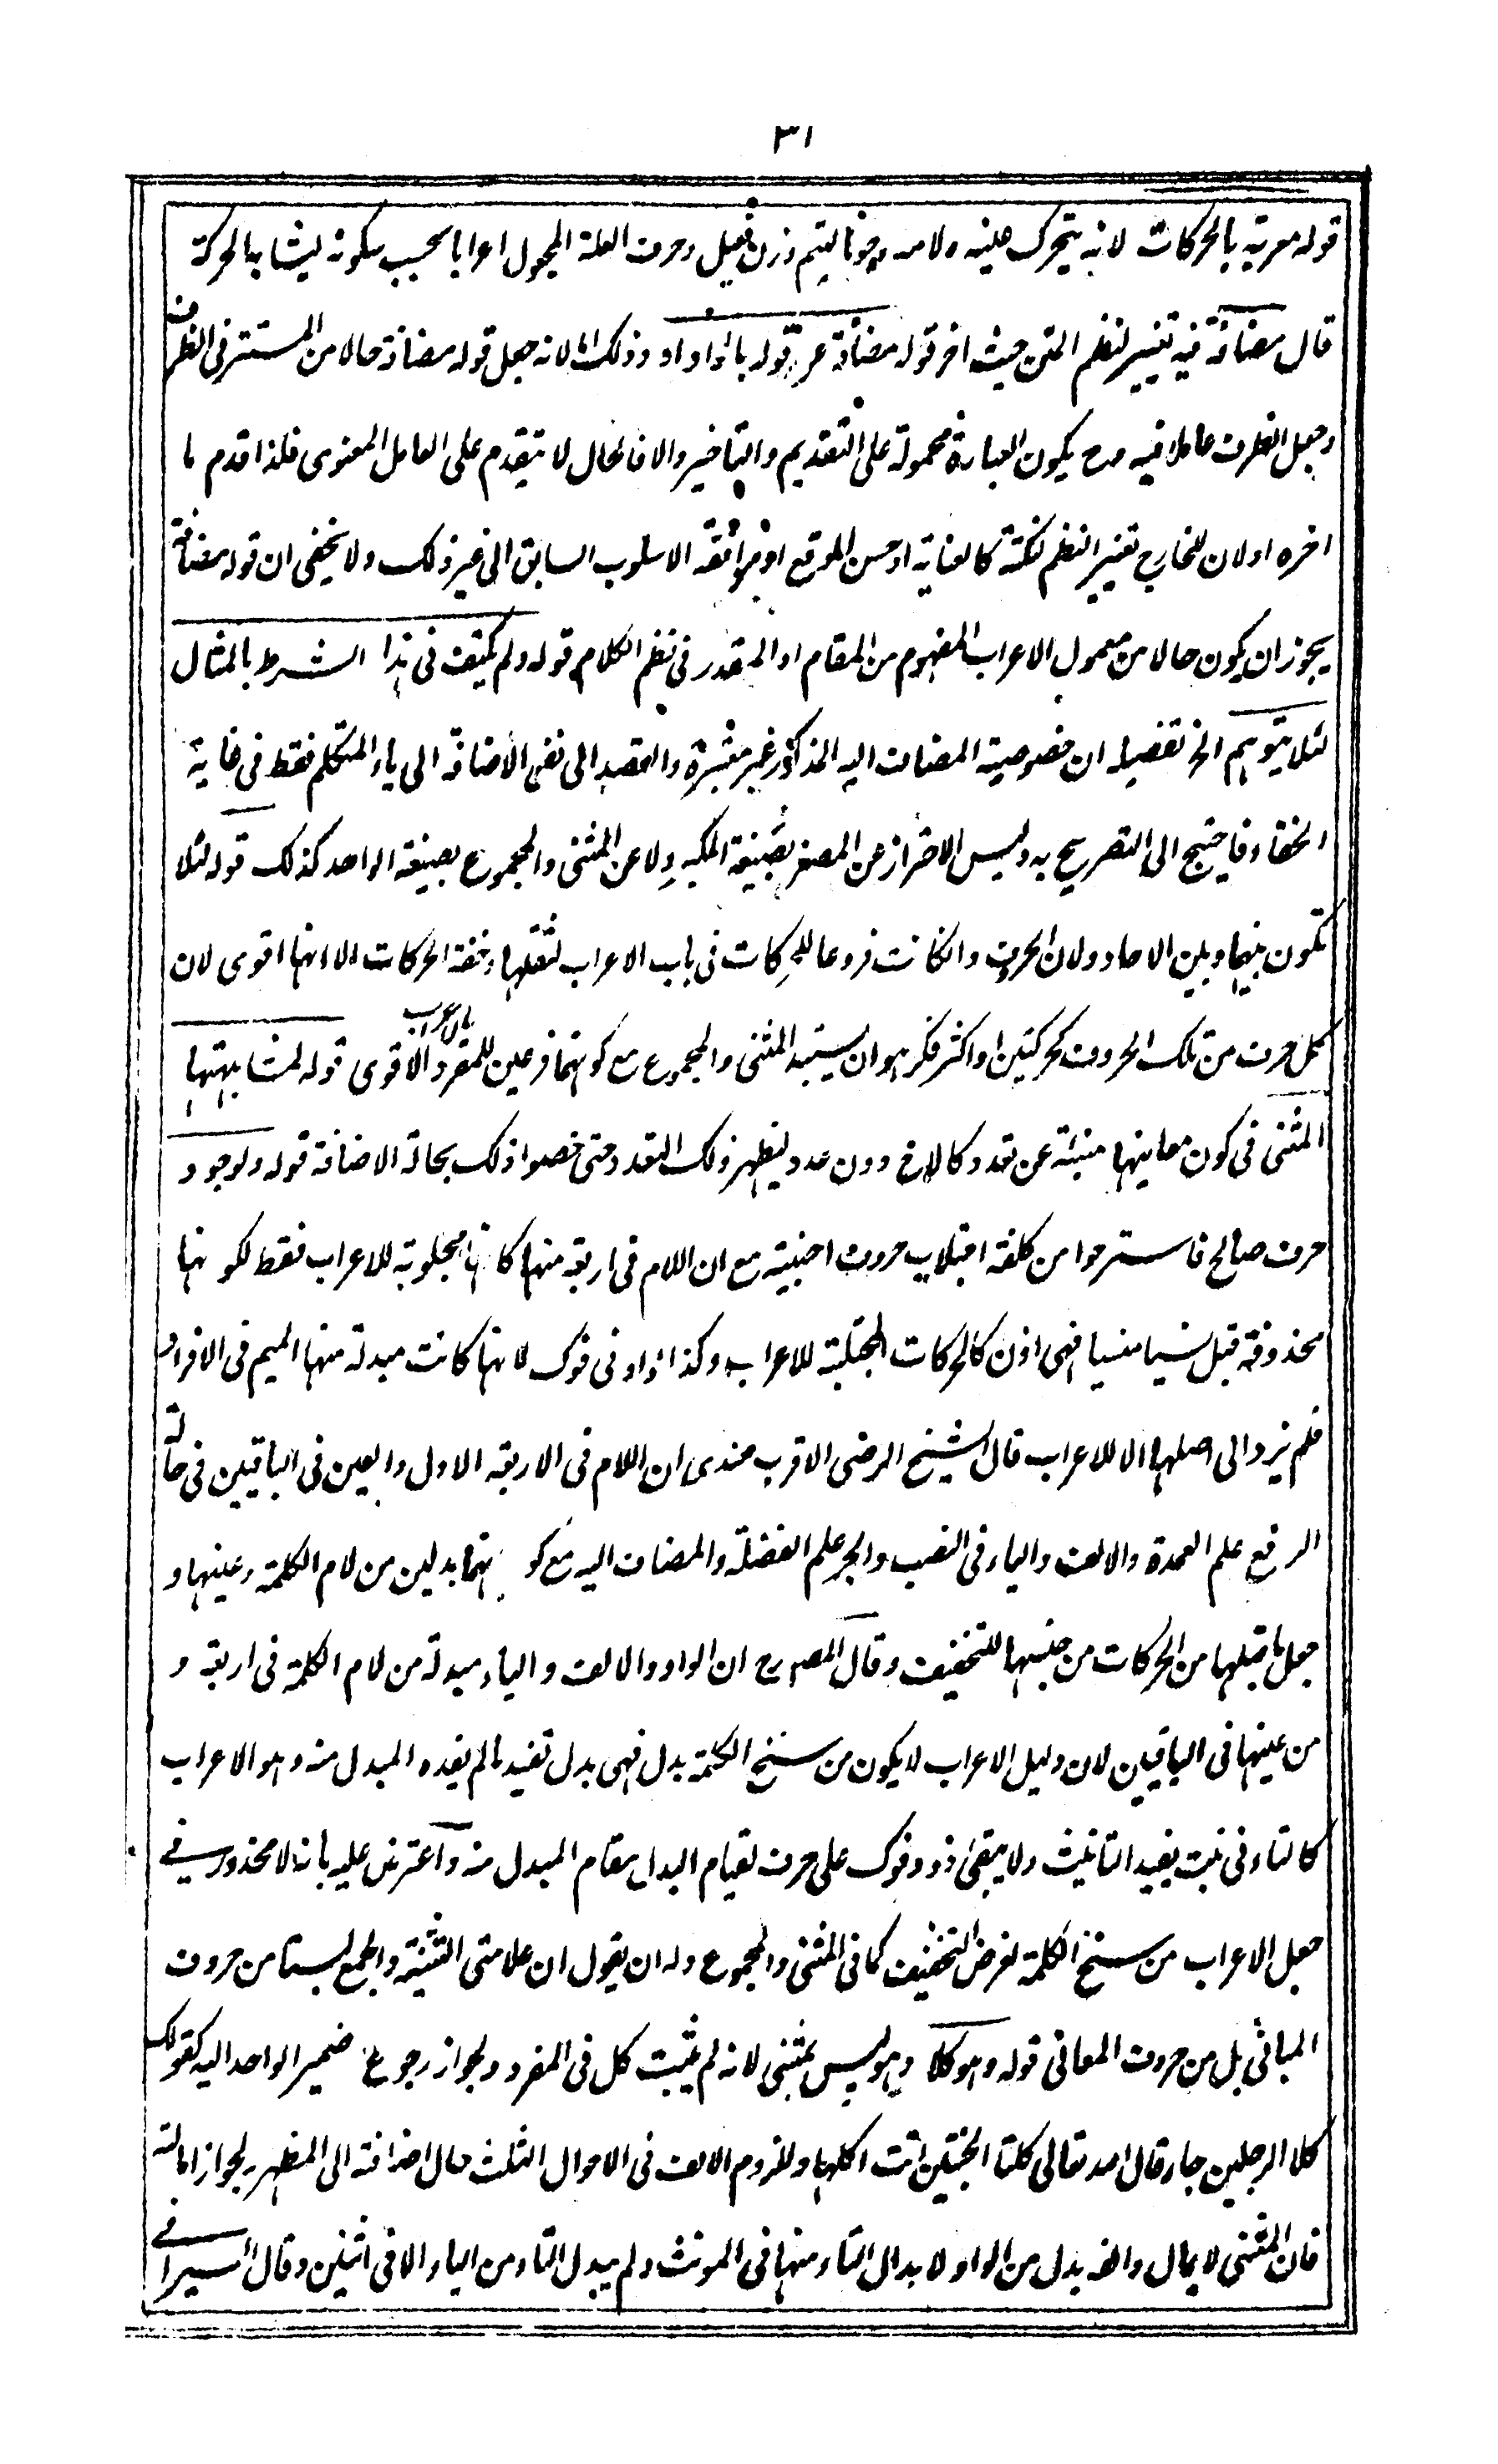 ٣١
قوله معربة بالحركات لانه يتحرك عينه ولامه وجوبا ليتم وزن فعيل وحرف العلة المجعول اعرابا يجب سكونه ليشابه الحركة
قال مضافة فيه تغيير لنظم المتن حيث اخر قوله مضافة عن قوله بالواو اه وذلك اما لانه جعل قوله مضافة حالا من المستتر فى الظرف
وجعل الظرف عاملا فيه وح يكون العبارة محمولة على التقديم والتاخير والا فالحال لا يتقدم على العامل المعنوى فلذا قدم ما
اخره او لان للخارج تغيير النظم لنكتة كالعناية او حسن الموقع او موافقة الاسلوب السابق الى غير ذلك ولا يخفى ان قوله مضافة
يجوز ان يكون حالا من معمول الاعراب المفهوم من المقام او المقدر فى نظم الكلام قوله ولم يكتف فى هذا الشرط بالمثال
لئلا يتوهم الخ تفصيله ان خصوصية المضاف اليه المذكور غير معتبرة والقصد الى نفى الاضافة الى ياء المتكلم فقط فى غاية
الخفاء فاحتيج الى التصريح به وليس الاحتراز عن المصغر بصيغة المكبر ولا عن المثنى والمجموع بصيغة الواحد كذلك قوله لئلا
تكون بينهما وبين الاحاد ولان الحروف وان كانت فروعا للحركات فى باب الاعراب لثقلها وخفة الحركات الا انها اقوى لان
كل حرف من تلك الحروف كحركتين او اكثر فكرهوا ان يستبد المثنى والمجموع مع كونهما فرعين للمفرد بالاعراب الاقوى قوله لمشابهتها
المثنى فى كون معانيها منبئة عن تعدد كالاخ دون عدد ليظهر ذلك التعدد حتى خصوا ذلك بحالة الاضافة قوله ولوجود
حرف صالح فاستراحوا من كلفة اجتلاب حروف اجنبية مع ان اللام فى اربعة منها كانها مجلوبة للاعراب فقط لكونها
محذوفة قبل نسيا منسيا فهى اذن كالحركات المجتلبة للاعراب وكذا الواو فى فوك لانها كانت مبدلة منها الميم فى الافراد
فلم يرد الى اصلها الا للاعراب قال الشيخ الرضى الاقرب عندى ان اللام فى الاربعة الاول والعين فى الباقيين فى حالة
الرفع علم العمدة والالف والياء فى النصب والجر علم الفضلة والمضاف اليه مع كونهما بدلين من لام الكلمة وعينها و
جعل ما قبلها من الحركات من جنسها للتخفيف وقال المصنف رح ان الواو والالف والياء مبدلة من لام الكلمة فى اربعة و
من عينها فى الباقيين لان دليل الاعراب لا يكون من سنخ الكلمة بدل فهى بدل تفيد ما لم يفده المبدل منه وهو الاعراب
كالتاء فى بنت يفيد التانيث ولا يبقى ذو وفوك على حرف لقيام البدل مقام المبدل منه واعترض عليه بانه لا محذور فى
جعل الاعراب من سنخ الكلمة لغرض التخفيف كما فى المثنى والمجموع وله ان يقول ان علامتى التثنية والجمع ليستا من حروف
المبانى بل من حروف المعانى قوله وهو كلا وهو ليس بمثنى لانه لم يثبت كل فى المفرد ولجواز رجوع ضمير الواحد اليه كقولك
كلا الرجلين جاء قال الله تعالى كلتا الجنتين اتت اكلها وللزوم الالف فى الاحوال الثلث حال اضافته الى المظهر ولجواز امالته
فان المثنى لا يمال والفه بدل من الواو لابدال التاء منها فى المونث ولم يبدل التاء من الياء الا فى اثنين وقال السيرافى